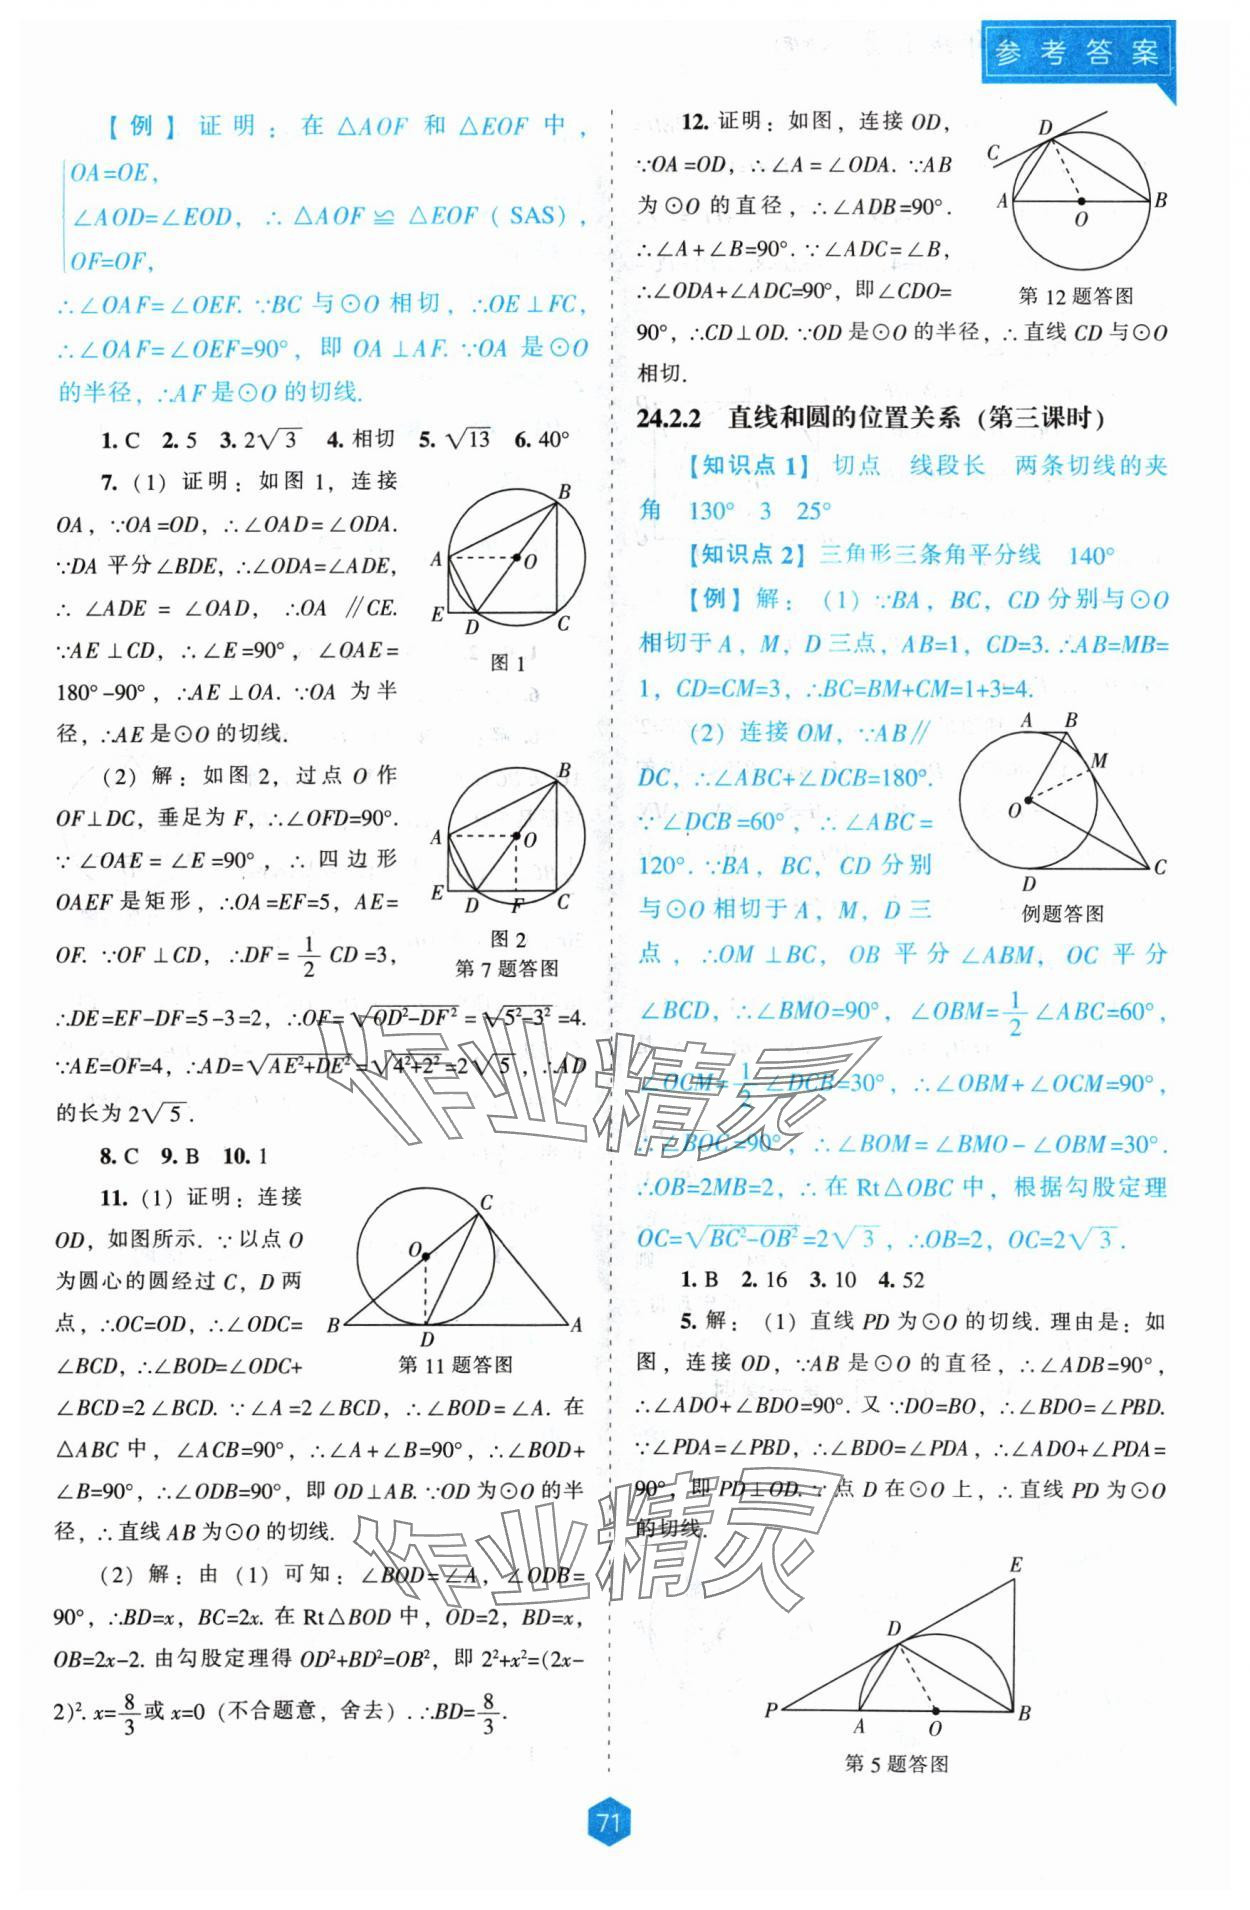 参考答案
【例】证明：在△AOF 和△EOF 中，
OA=OE，
∠AOD=∠EOD，∴△AOF≌△EOF（SAS），
OF=OF，
∴∠OAF=∠OEF. ∵BC 与⊙O 相切，∴OE⊥FC，
∴∠OAF=∠OEF=90°，即 OA⊥AF. ∵OA 是⊙O
的半径，∴AF 是⊙O 的切线.
1. C 2. 5 3. 2√3 4. 相切 5. √13 6. 40°
7.（1）证明：如图 1，连接
OA，∵OA=OD，∴∠OAD=∠ODA.
∵DA 平分∠BDE，∴∠ODA=∠ADE，
∴∠ADE=∠OAD，∴OA∥CE.
∵AE⊥CD，∴∠E=90°，∠OAE=
180°-90°，∴AE⊥OA. ∵OA 为半
径，∴AE 是⊙O 的切线.
A
B
O
E
D
C
图 1
（2）解：如图 2，过点 O 作
OF⊥DC，垂足为 F，∴∠OFD=90°.
∵∠OAE=∠E=90°，∴四边形
OAEF 是矩形，∴OA=EF=5，AE=
OF. ∵OF⊥CD，∴DF=1/2 CD=3，
A
B
O
E
D
F
C
图 2
第 7 题答图
∴DE=EF-DF=5-3=2，∴OF=√(OD²-DF²)=√(5²-3²)=4.
∵AE=OF=4，∴AD=√(AE²+DE²)=√(4²+2²)=2√5，∴AD
的长为 2√5.
8. C 9. B 10. 1
11.（1）证明：连接
OD，如图所示. ∵以点 O
为圆心的圆经过 C，D 两
点，∴OC=OD，∴∠ODC=
∠BCD，∴∠BOD=∠ODC+
C
O
B
D
A
第 11 题答图
∠BCD=2∠BCD. ∵∠A=2∠BCD，∴∠BOD=∠A. 在
△ABC 中，∠ACB=90°，∴∠A+∠B=90°，∴∠BOD+
∠B=90°，∴∠ODB=90°，即 OD⊥AB. ∵OD 为⊙O 的半
径，∴直线 AB 为⊙O 的切线.
（2）解：由（1）可知：∠BOD=∠A，∠ODB=
90°，∴BD=x，BC=2x. 在 Rt△BOD 中，OD=2，BD=x，
OB=2x-2. 由勾股定理得 OD²+BD²=OB²，即 2²+x²=(2x-
2)². x=8/3 或 x=0（不合题意，舍去）. ∴BD=8/3.
12. 证明：如图，连接 OD，
∵OA=OD，∴∠A=∠ODA. ∵AB
为⊙O 的直径，∴∠ADB=90°.
∴∠A+∠B=90°. ∵∠ADC=∠B，
∴∠ODA+∠ADC=90°，即∠CDO=
C
D
A
O
B
第 12 题答图
90°，∴CD⊥OD. ∵OD 是⊙O 的半径，∴直线 CD 与⊙O
相切.
24.2.2 直线和圆的位置关系（第三课时）
【知识点 1】切点 线段长 两条切线的夹
角 130° 3 25°
【知识点 2】三角形三条角平分线 140°
【例】解：（1）∵BA，BC，CD 分别与⊙O
相切于 A，M，D 三点，AB=1，CD=3. ∴AB=MB=
1，CD=CM=3，∴BC=BM+CM=1+3=4.
（2）连接 OM，∵AB∥
DC，∴∠ABC+∠DCB=180°.
∵∠DCB=60°，∴∠ABC=
120°. ∵BA，BC，CD 分别
与⊙O 相切于 A，M，D 三
A
B
M
O
D
C
例题答图
点，∴OM⊥BC，OB 平分∠ABM，OC 平分
∠BCD，∴∠BMO=90°，∠OBM=1/2∠ABC=60°，
∠OCM=1/2∠DCB=30°，∴∠OBM+∠OCM=90°，
∴∠BOC=90°，∴∠BOM=∠BMO-∠OBM=30°.
∴OB=2MB=2，∴在 Rt△OBC 中，根据勾股定理
OC=√(BC²-OB²)=2√3，∴OB=2，OC=2√3.
1. B 2. 16 3. 10 4. 52
5. 解：（1）直线 PD 为⊙O 的切线. 理由是：如
图，连接 OD，∵AB 是⊙O 的直径，∴∠ADB=90°，
∴∠ADO+∠BDO=90°. 又∵DO=BO，∴∠BDO=∠PBD.
∵∠PDA=∠PBD，∴∠BDO=∠PDA，∴∠ADO+∠PDA=
90°，即 PD⊥OD. ∵点 D 在⊙O 上，∴直线 PD 为⊙O
的切线.
E
D
P
A
O
B
第 5 题答图
作业精灵
作业精灵
71